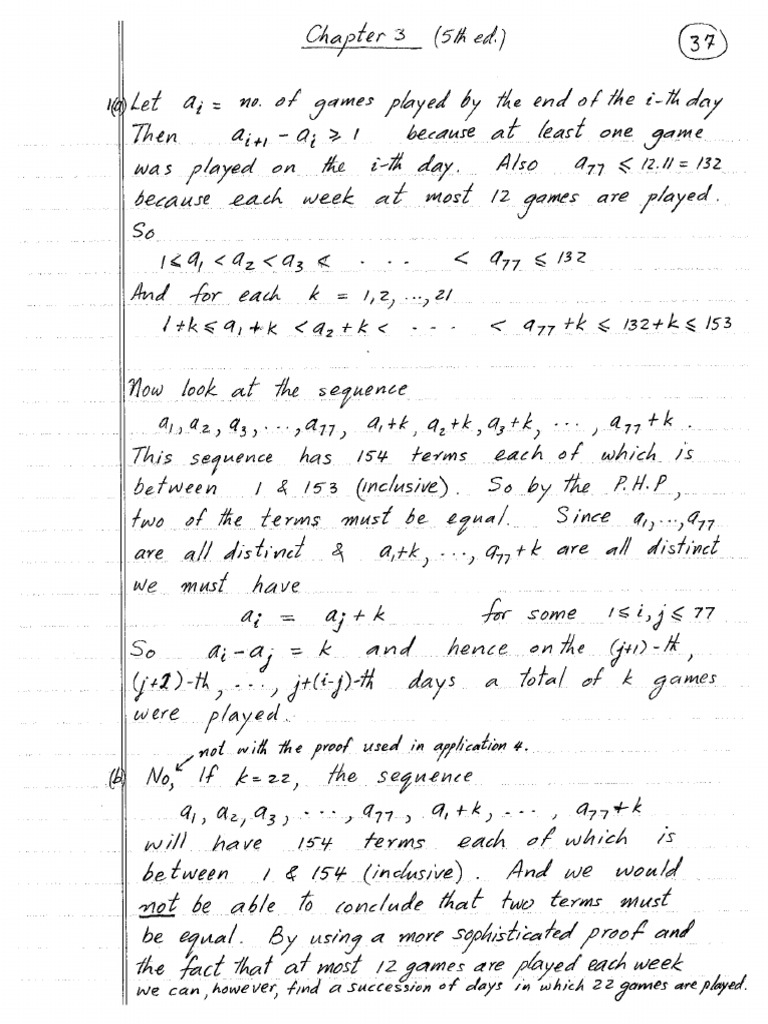 Chapter 3 (5th ed.) 37
1(a) Let aᵢ = no. of games played by the end of the i-th day
Then aᵢ₊₁ - aᵢ ⩾ 1 because at least one game
was played on the i-th day. Also a₇₇ ⩽ 12.11 = 132
because each week at most 12 games are played.
So
1 ⩽ a₁ < a₂ < a₃ < . . . . < a₇₇ ⩽ 132
And for each k = 1,2, ...,21
1+k ⩽ a₁+k < a₂+k < . . . < a₇₇+k ⩽ 132+k ⩽ 153
Now look at the sequence
a₁, a₂, a₃, ..., a₇₇, a₁+k, a₂+k, a₃+k, ..., a₇₇+k.
This sequence has 154 terms each of which is
between 1 & 153 (inclusive). So by the P.H.P,
two of the terms must be equal. Since a₁,...,a₇₇
are all distinct & a₁+k, ..., a₇₇+k are all distinct
we must have
aᵢ = aⱼ + k for some 1 ⩽ i, j ⩽ 77
So aᵢ - aⱼ = k and hence on the (j+1)-th,
(j+2)-th, ..., j+(i-j)-th days a total of k games
were played.
not with the proof used in application 4.
(b) No, If k=22, the sequence
a₁, a₂, a₃, ..., a₇₇, a₁+k, ..., a₇₇+k
will have 154 terms each of which is
between 1 & 154 (inclusive). And we would
not be able to conclude that two terms must
be equal. By using a more sophisticated proof and
the fact that at most 12 games are played each week
we can, however, find a succession of days in which 22 games are played.